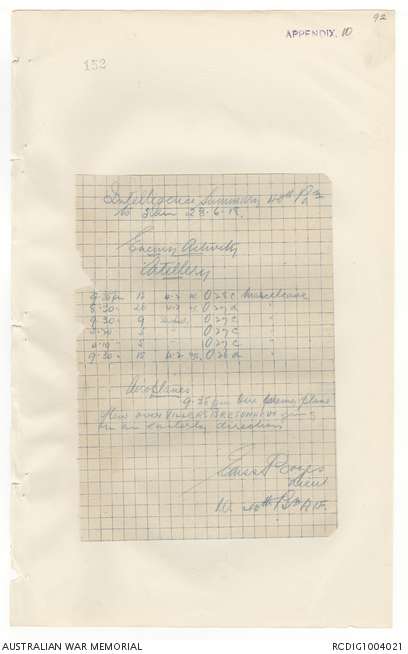 92
APPENDIX. 10
152
Intelligence Summary 40th Bn
to 5am 28.6.18.
Enemy Activity
Artillery
9.30 pm 12 4.2 O 28 c
8.30 20 4.2 O 27 d
9.30 9 O 27 c
5 O 27 c
5 O 27 c
9.30 15 4.2 O 26 d
Aeroplanes
9.35 pm One enemy plane
flew over VILLERS BRETONNEUX going
in an easterly direction
Lieut
40th Bn AIF.
AUSTRALIAN WAR MEMORIAL
RCDIG1004021